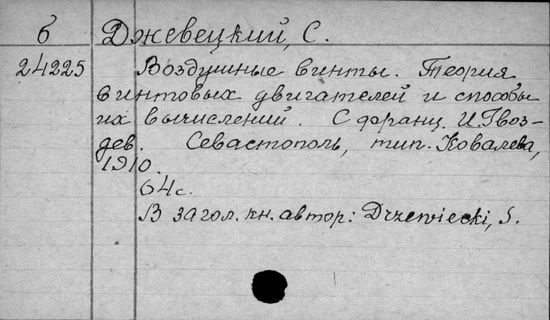 б Джевецкий, С.
24225 Воздушные винты. Теория
винтовых двигателей и способы
их вычислений. С франц. И. Гвоз-
дев. Севастополь, тип. Ковалева,
1910.
64 с.
В загол. кн. автор: Drzewiecki, S.